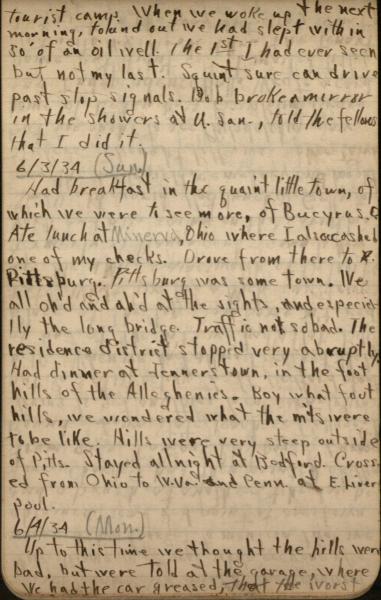 tourist camp. When we woke up the next
morning, found out we had slept within
50' of an oil well. The 1st I had ever seen
but not my last. Squint sure can drive
past stop signals. Bob broke a mirror
in the showers at U. San., told the fellows
that I did it.
6/3/34 (Sun.)
Had breakfast in the quaint little town, of
which we were to see more, of Bucyrus, O
Ate lunch at Minerva, Ohio where I also cashed
one of my checks. Drove from there to
Pittsburg. Pittsburg was some town. We
all oh'd and ah'd at the sights, and especia-
lly the long bridge. Traffic not so bad. The
residence district stopped very abruptly.
Had dinner at Jennerstown, in the foot
hills of the Alleghenies. Boy what foot
hills, we wondered what the mts were
to be like. Hills were very steep outside
of Pitts. Stayed all night at Bedford. Cross-
ed from Ohio to W.Va. and Penn. at E. Liver
pool.
6/4/34 (Mon.)
Up to this time we thought the hills were
bad, but were told at the garage, where
we had the car greased, that the worst